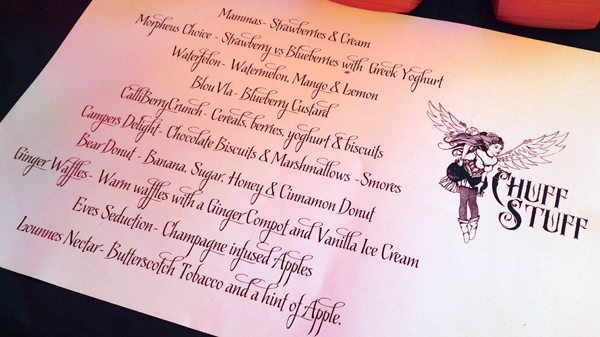 Mammas - Strawberries & Cream
Morpheus Choice - Strawberry vs Blueberries with Greek Yoghurt
Waterfelon - Watermelon, Mango & Lemon
Blou Vla - Blueberry Custard
CalliBerryCrunch - Cereals, berries, yoghurt & biscuits
Campers Delight - Chocolate Biscuits & Marshmallows - Smores
Bear Donut - Banana, Sugar, Honey & Cinnamon Donut
Ginger Waffles - Warm waffles with a Ginger Compot and Vanilla Ice Cream
Eves Seduction - Champagne infused Apples
Lounnes Nectar - Butterscotch Tobacco and a hint of Apple.
CHUFF
STUFF